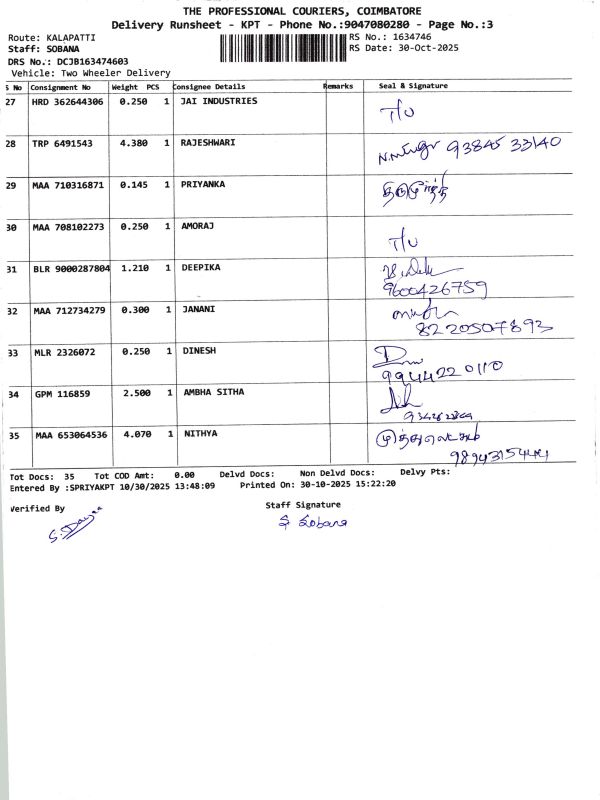 THE PROFESSIONAL COURIERS, COIMBATORE
Delivery Runsheet - KPT - Phone No.:9047080280 - Page No.:3
Route: KALAPATTI RS No.: 1634746
Staff: SOBANA RS Date: 30-Oct-2025
DRS No.: DCJB163474603
Vehicle: Two Wheeler Delivery
S No Consignment No Weight PCS Consignee Details Remarks Seal & Signature
27 HRD 362644306 0.250 1 JAI INDUSTRIES T/U
28 TRP 6491543 4.380 1 RAJESHWARI 93845 33140
29 MAA 710316871 0.145 1 PRIYANKA
30 MAA 708102273 0.250 1 AMORAJ T/U
31 BLR 9000287804 1.210 1 DEEPIKA
9600426759
32 MAA 712734279 0.300 1 JANANI
8220507893
33 MLR 2326072 0.250 1 DINESH
9944220110
34 GPM 116859 2.500 1 AMBHA SITHA
35 MAA 653064536 4.070 1 NITHYA
9894315444
Tot Docs: 35 Tot COD Amt: 0.00 Delvd Docs: Non Delvd Docs: Delvy Pts:
Entered By :SPRIYAKPT 10/30/2025 13:48:09 Printed On: 30-10-2025 15:22:20
Verified By Staff Signature
S. Sobana